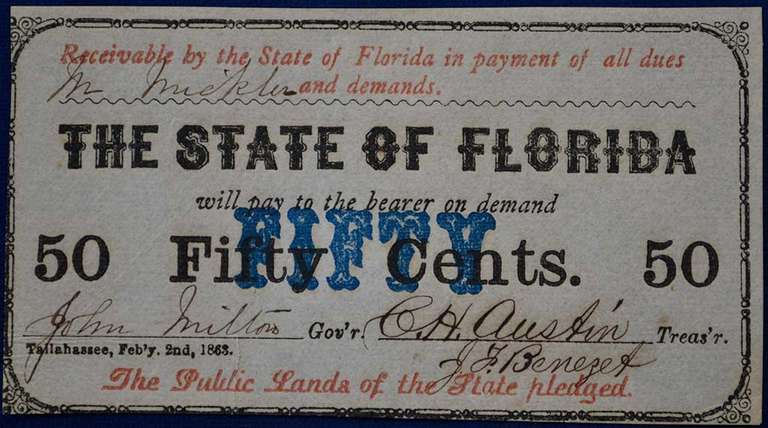 Receivable by the State of Florida in payment of all dues
M Mickler and demands.
THE STATE OF FLORIDA
will pay to the bearer on demand
FIFTY
50 Fifty Cents. 50
John Milton Gov'r. C. H. Austin Treas'r.
Tallahassee, Feb'y. 2nd, 1863. J. F. Benezet
The Public Lands of the State pledged.